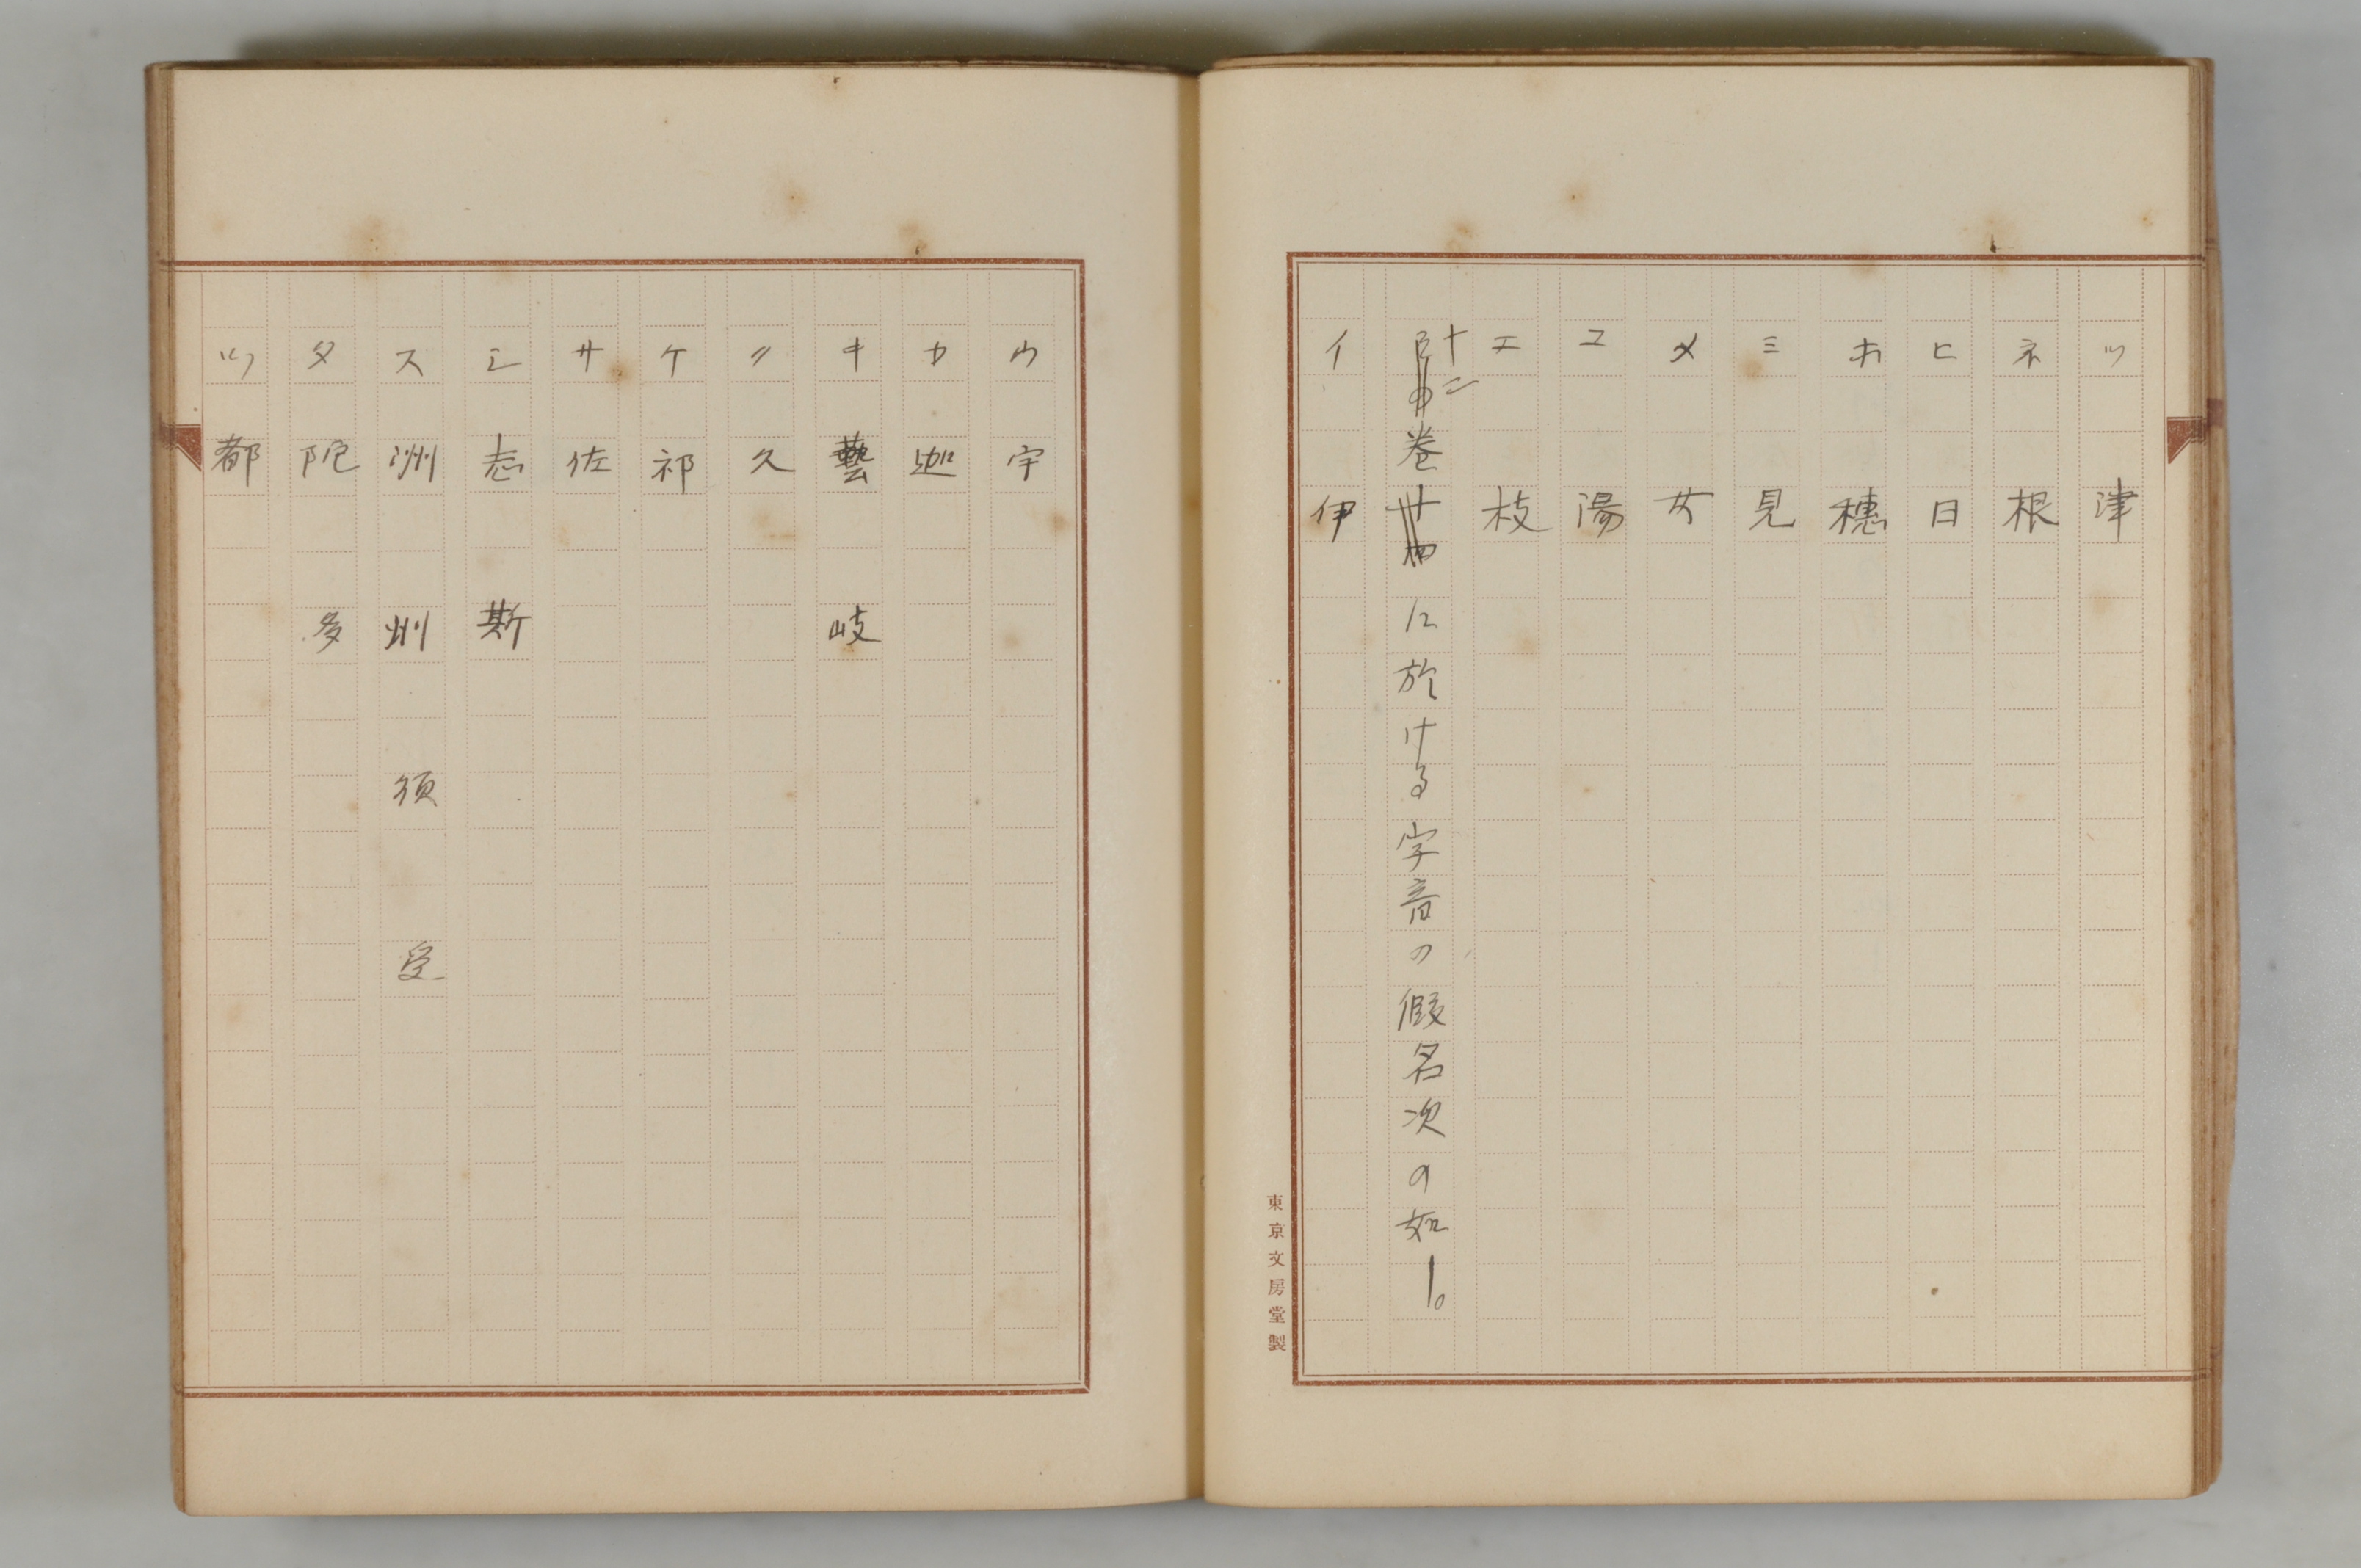 ツ 津
ネ 根
ヒ 日
ホ 穗
ミ 見
メ 女
ユ 湯
エ 枝
十二卷に於ける字音の假名次の如し。
イ 伊
東京文房堂製
ウ 宇
カ 迦
キ 藝 岐
ク 久
ケ 祁
サ 佐
シ 志 斯
ス 洲 州 須 受
タ 陀 多
ツ 都